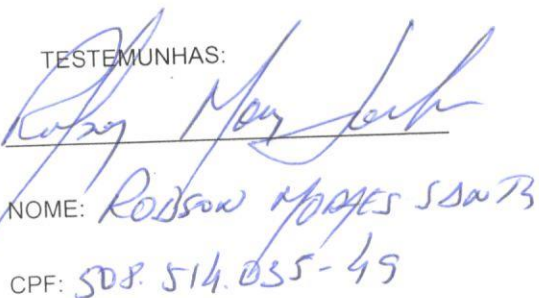 TESTEMUNHAS:
NOME: ROBSON MORAES SANTOS
CPF: 508.514.035-49